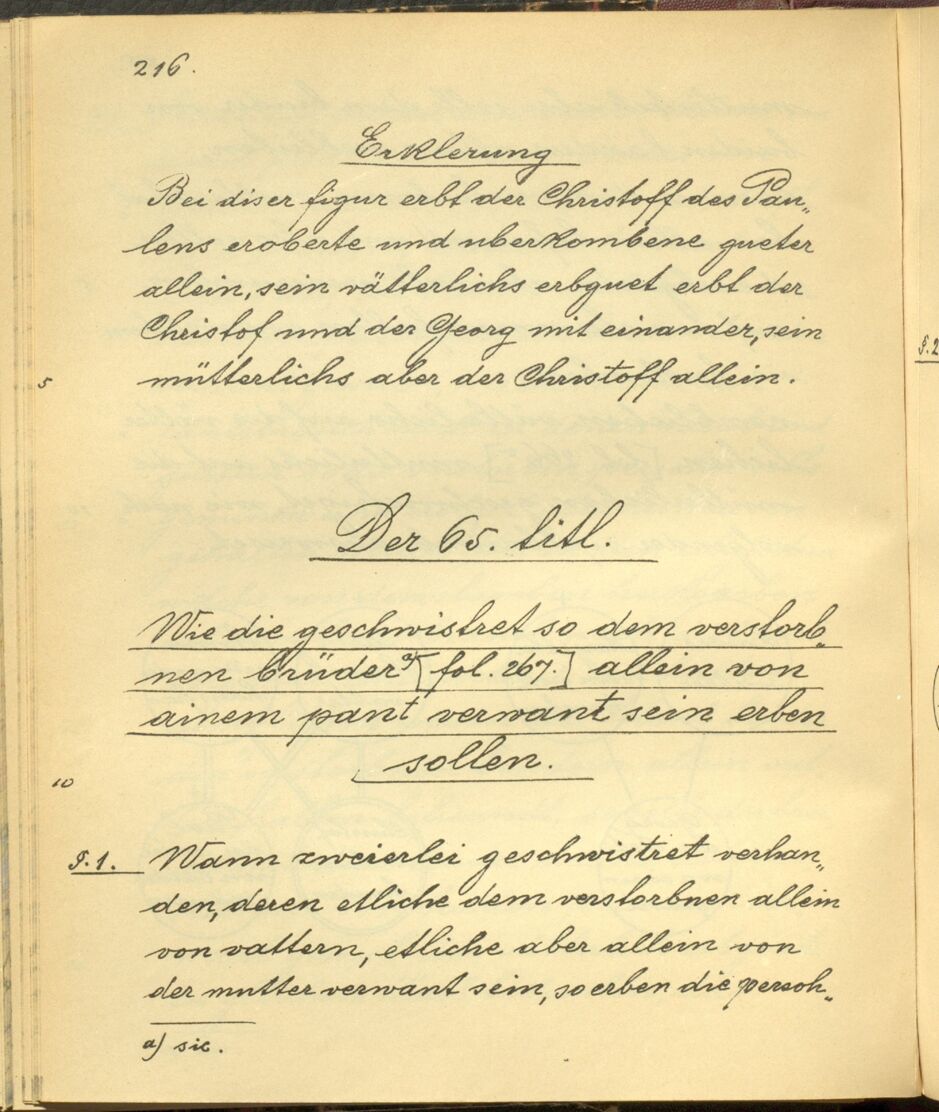 216.
Erklerung
Bei diser figur erbt der Christoff des Pau„
lens eroberte und uberkombene gueter
allein, sein vätterlichs erbguet erbt der
Christof und der Georg mit einander, sein
5 mütterlichs aber der Christoff allein.
Der 65. titl.
Wie die geschwistret so dem verstorb„
nen brüder a) [fol. 267.] allein von
ainem pant verwant sein erben
10 sollen.
§.1. Wann zweierlei geschwistret verhan„
den, deren etliche dem verstorbnen allein
von vattern, etliche aber allein von
der mutter verwant sein, so erben die persoh„
a) sic.
§.2